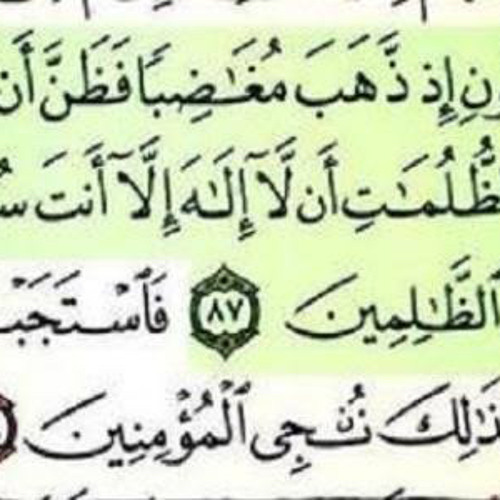 ونِ إِذ ذَّهَبَ مُغَـٰضِبًا فَظَنَّ أَن
ظُّلُمَـٰتِ أَن لَّآ إِلَـٰهَ إِلَّآ أَنتَ سُ
ٱلظَّـٰلِمِينَ ٨٧ فَٱسۡتَجَبۡ
ذَٰلِكَ نُـۨجِى ٱلۡمُؤۡمِنِينَ